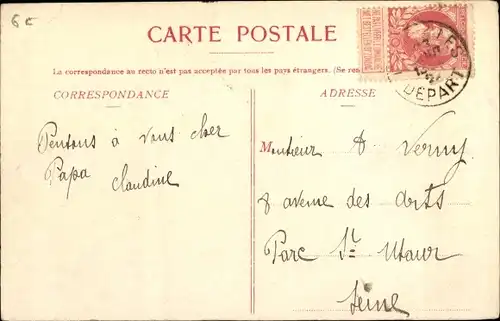 6€
CARTE POSTALE
La correspondance au recto n'est pas acceptée par tous les pays étrangers. (Se ren
CORRESPONDANCE
ADRESSE
DEPART
Pensons à vous cher
Papa Claudine
Monsieur A Verny
8 avenue des Arts
Parc St Maur
Seine